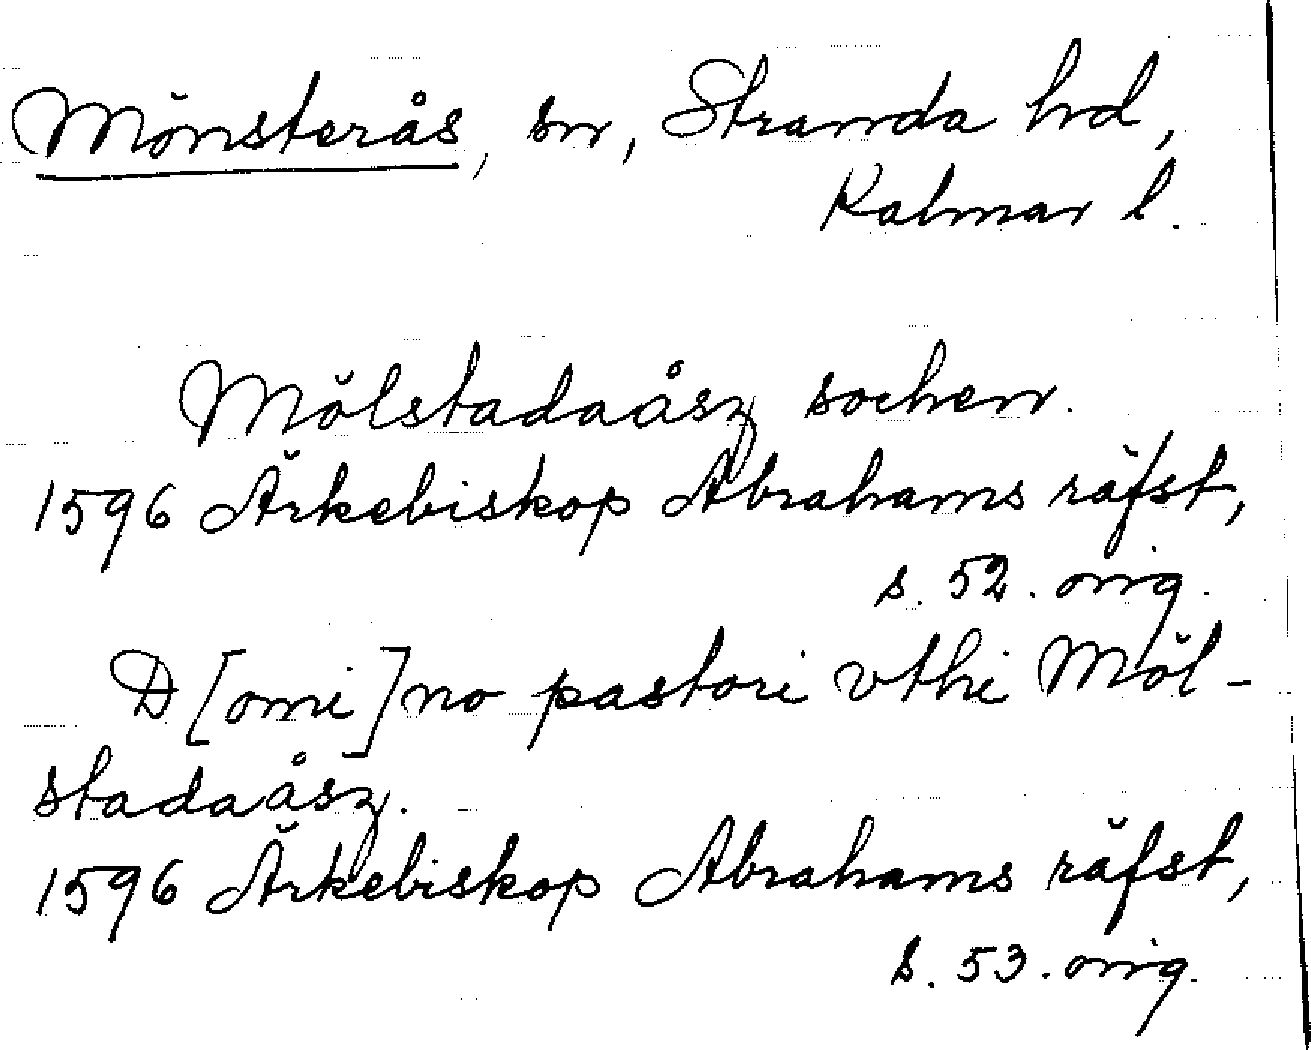 Mönsterås, sn, Stranda hd,
Kalmar l.
Mölstadaåsz sochen.
1596 Ärkebiskop Abrahams räfst,
s. 52. orig.
D[omi]no pastori vthi Möl-
stadaåsz.
1596 Ärkebiskop Abrahams räfst,
s. 53. orig.